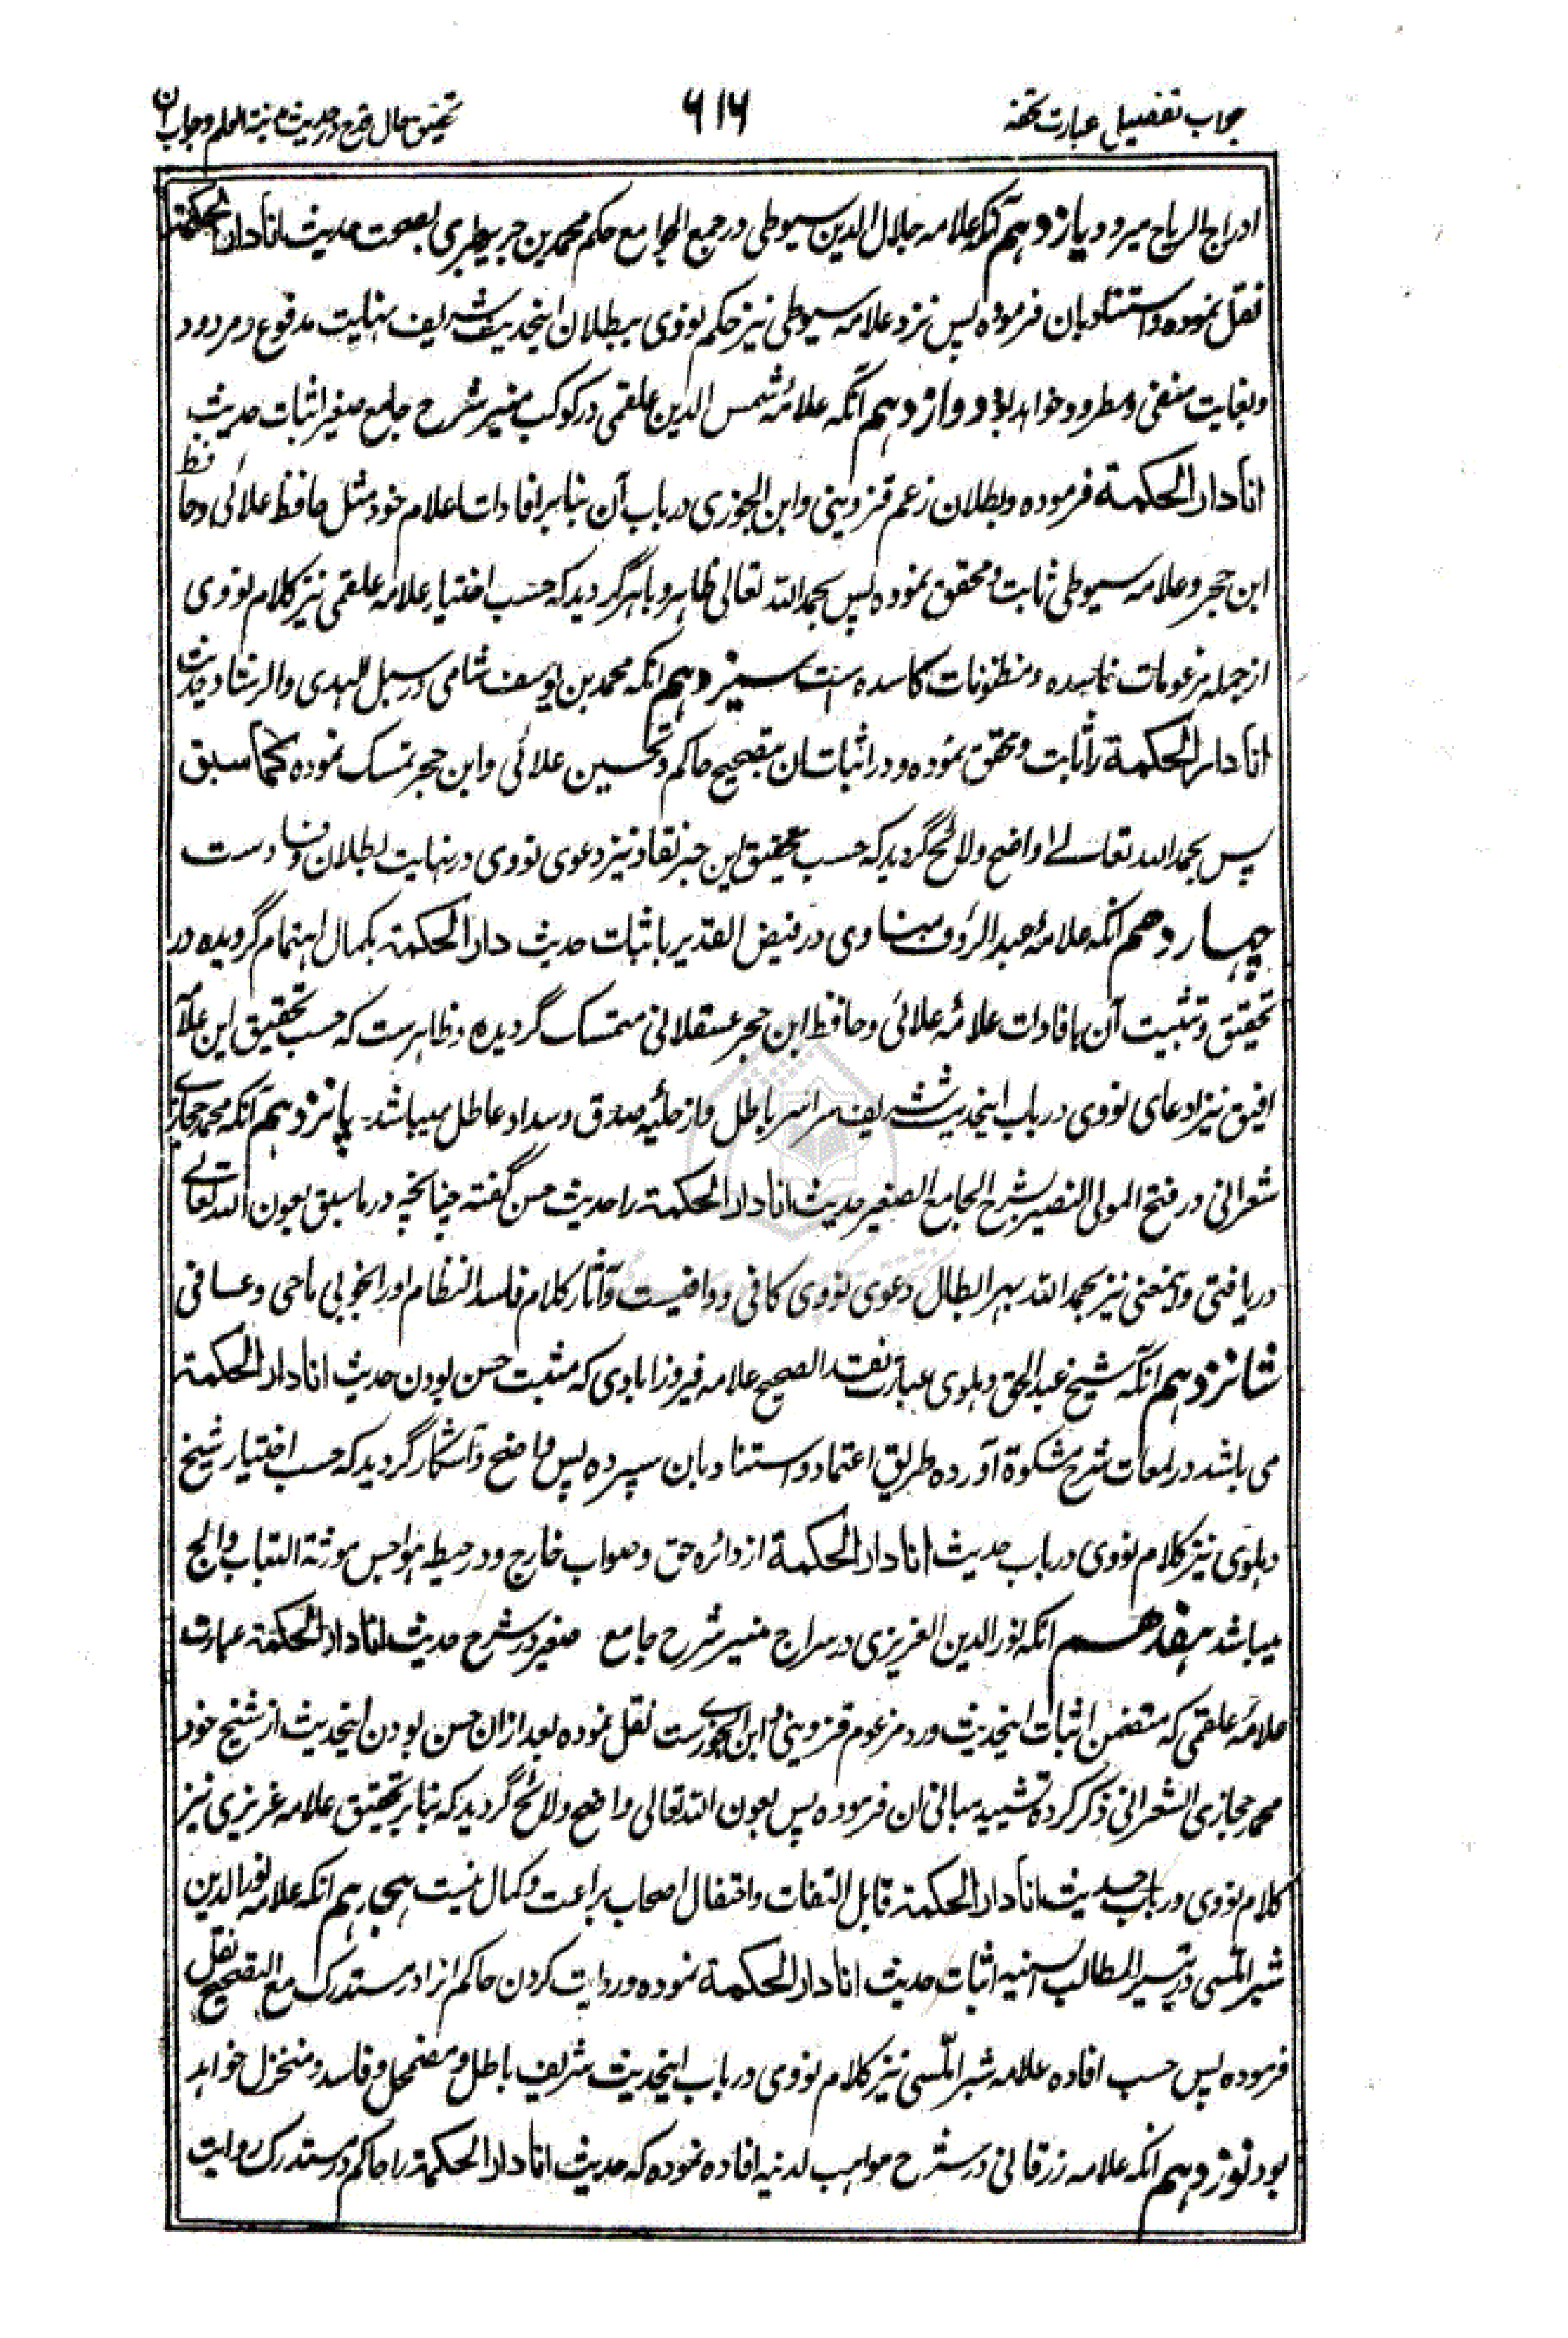 جواب تفصیلی عبارت تحفه
۶۱۶
تحقیق حال قدح در حدیث مدینة العلم و جواب آن
ادراج الریاح میرود یازدهم آنکه علامه جلال الدین سیوطی در جمع الجوامع حکم محمد بن جریر طبری بصحت حدیث انا دار الحکمة
نقل نموده و استناد بان فرموده پس نزد علامه سیوطی نیز حکم نووی ببطلان اینحدیث شریف بنهایت مدفوع و مردود
و بغایت منفی و مطرود خواهد بود دوازدهم آنکه علامۀ شمس الدین علقمی در کوکب منیر شرح جامع صغیر اثبات حدیث
انا دار الحکمة فرموده و بطلان زعم قزوینی و ابن الجوزی در باب آن بنابر افادات اعلام خود مثل حافظ علائی و حافظ
ابن حجر و علامه سیوطی ثابت و محقق نموده پس بحمد الله تعالی ظاهر و باهر گردید که حسب اختیار علامه علقمی نیز کلام نووی
از جمله مزعومات فاسده و مظنونات کاسده است سیزدهم انکه محمد بن یوسف شامی در سبل الهدی والرشاد حدیث
انا دار الحکمة را ثابت و محقق نموده و در اثبات ان بتصحیح حاکم و تحسین علائی و ابن حجر تمسک نموده کما سبق
پس بحمد الله تعالی واضح و لائح گردید که حسب تحقیق این حبر نقاد نیز دعوی نووی در نهایت بطلان و فسادست
چهاردهم انکه علامۀ عبد الرؤف مناوی در فیض القدیر باثبات حدیث دار الحکمة بکمال اهتمام گرویده در
تحقیق و تثبیت آن بافادات علامۀ علائی و حافظ ابن حجر عسقلانی متمسک گردیده و ظاهرست که حسب تحقیق این علامۀ
افیق نیز ادعای نووی در باب اینحدیث شریف سراسر باطل و از حلیۀ صدق و سداد عاطل میباشد - پانزدهم آنکه محمد حجازی
شعرانی در فتح المولی النصیر بشرح الجامع الصغیر حدیث انا دار الحکمة را حدیث حسن گفته چنانچه در ما سبق بعون الله تعالی
دریافتی و اینمعنی نیز بحمد الله بهر ابطال دعوی نووی کافی و وافیست و آثار کلام فاسد النظام او را بخوبی ماحی و عافی
شانزدهم آنکه شیخ عبد الحق دهلوی عبارت نقد الصحیح علامه فیروزابادی که مثبت حسن بودن حدیث انا دار الحکمة
می باشد در لمعات شرح مشکوة آورده طریق اعتماد و استناد بان سپرده پس واضح و آشکار گردید که حسب اختیار شیخ
دهلوی نیز کلام نووی در باب حدیث انا دار الحکمة از دائره حق و صواب خارج و در حیطه هواجس مورثة التباب والج
میباشد هفدهم انکه نور الدین العزیزی در سراج منیر شرح جامع صغیر در شرح حدیث انا دار الحکمة عبارت
علامۀ علقمی که متضمن اثبات اینحدیث ورد مزعوم قزوینی و ابن الجوزی ست نقل نموده بعد ازان حسن بودن اینحدیث از شیخ خود
محمد حجازی الشعرانی ذکر کرده تشیید مبانی ان فرموده پس بعون الله تعالی واضح و لائح گردید که بنابر تحقیق علامه عزیزی نیز
کلام نووی در باب حدیث انا دار الحکمة قابل التفات و احتفال اصحاب براعت و کمال نیست هیجدهم انکه علامه نور الدین
شبراملسی در تیسیر المطالب السنیه اثبات حدیث انا دار الحکمة نموده و روایت کردن حاکم انرا در مستدرک مع التصحیح نقل
فرموده پس حسب افاده علامه شبراملسی نیز کلام نووی در باب اینحدیث شریف باطل و مضمحل و فاسد و منخزل خواهد
بود نوزدهم انکه علامه زرقانی در شرح مواهب لدنیه افاده نموده که حدیث انا دار الحکمة را حاکم در مستدرک روایت